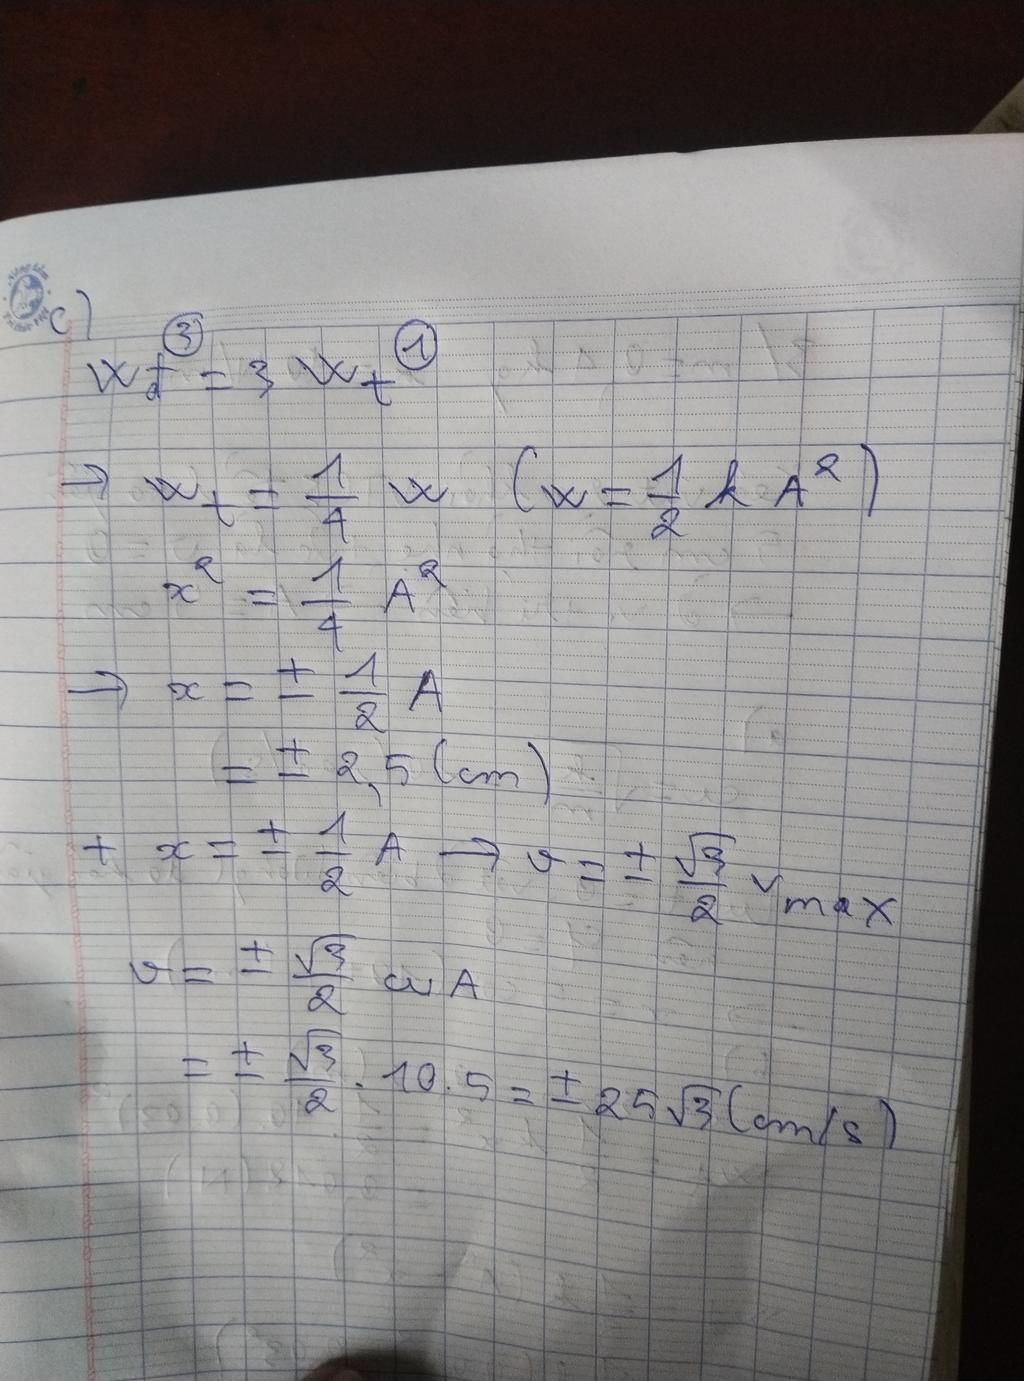 c)
③ ①
Wđ = 3 Wt
→ Wt = 1/4 W (W = 1/2 k A²)
x² = 1/4 A²
→ x = ± 1/2 A
= ± 2,5 (cm)
+ x = ± 1/2 A → v = ± √3/2 vmax
v = ± √3/2 ωA
= ± √3/2 . 10.5 = ± 25√3 (cm/s)